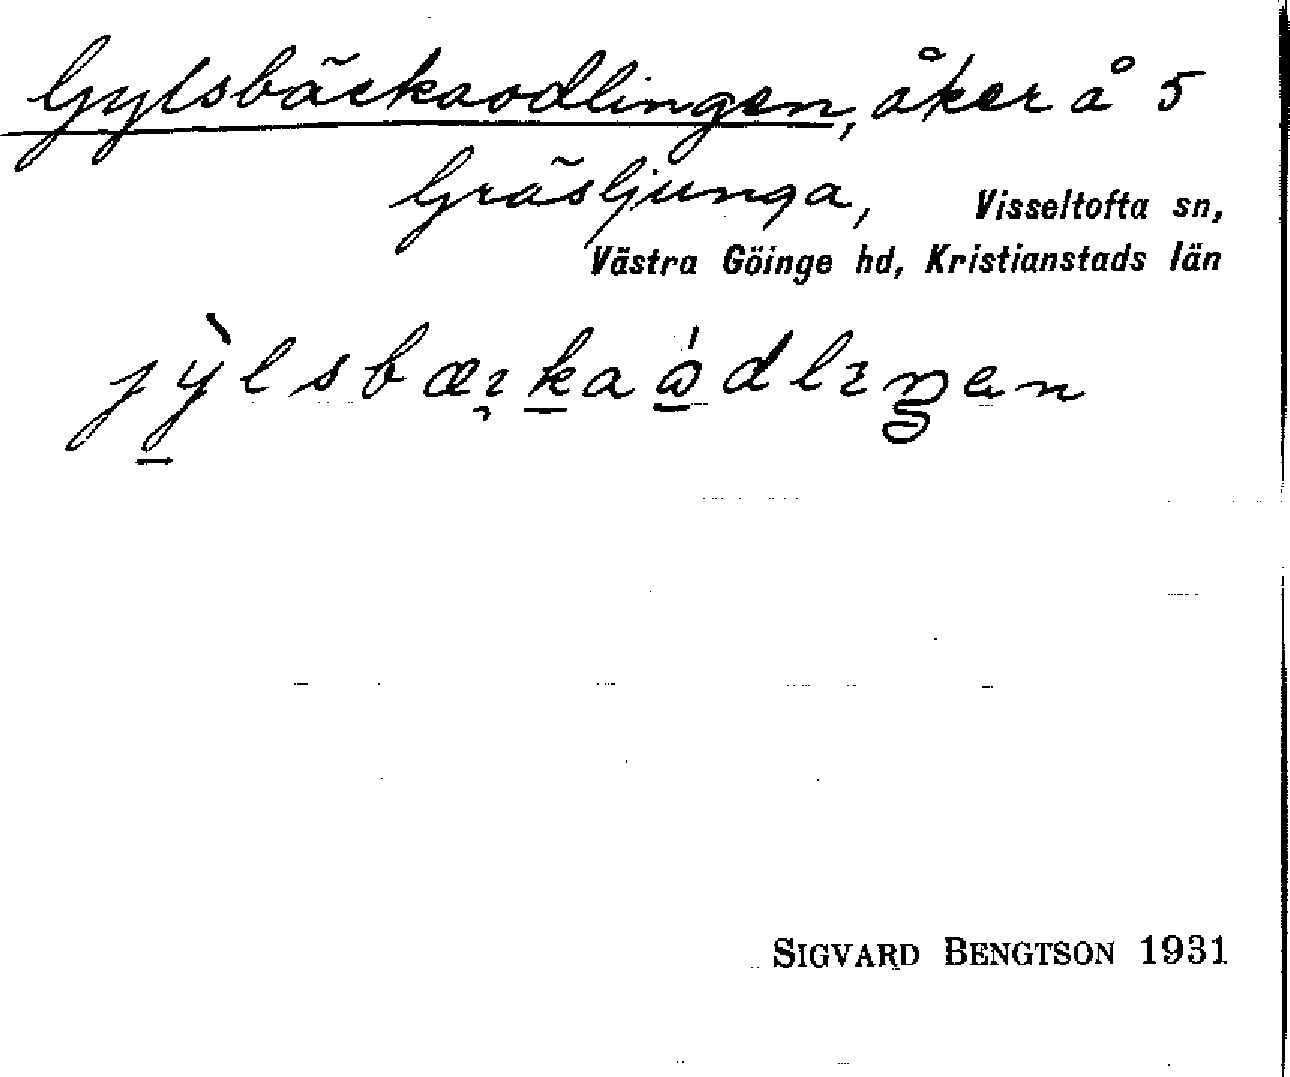 Gylsbäckaodlingen, åker å 5
Gräsljunga, Visseltofta sn,
Västra Göinge hd, Kristianstads län
SIGVARD BENGTSON 1931